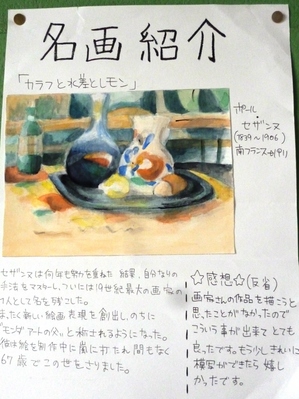 名画紹介
「カラフと水差とレモン」
ポール・
セザンヌ
(1839〜1906)
南フランス
セザンヌは何年も努力を重ねた結果、自分なりの
手法をマスターし、ついには19世紀最大の画家の
1人として名を残こした。
まったく新しい絵画表現を創出し、のちに
「モンダアートの父。」と称されるようになった。
彼は絵を制作中に嵐に打たれ間もなく
67歳でこの世をさりました。
☆感想☆(反省)
画家さんの作品を描こうと
思ったことがなかったので
こういう事が出来てとても
良ったです。もう少しきれいに
模写ができたら嬉し
かったです。